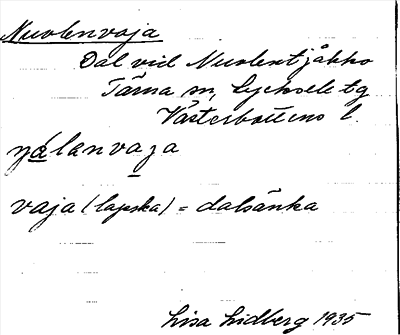 Nuolenvaja
Dal vid Nuolentjåkko
Tärna sn, Lycksele tg
Västerbottens l.
nålanvaza
vaja (lapska) = dalsänka
Lisa Lidberg 1935